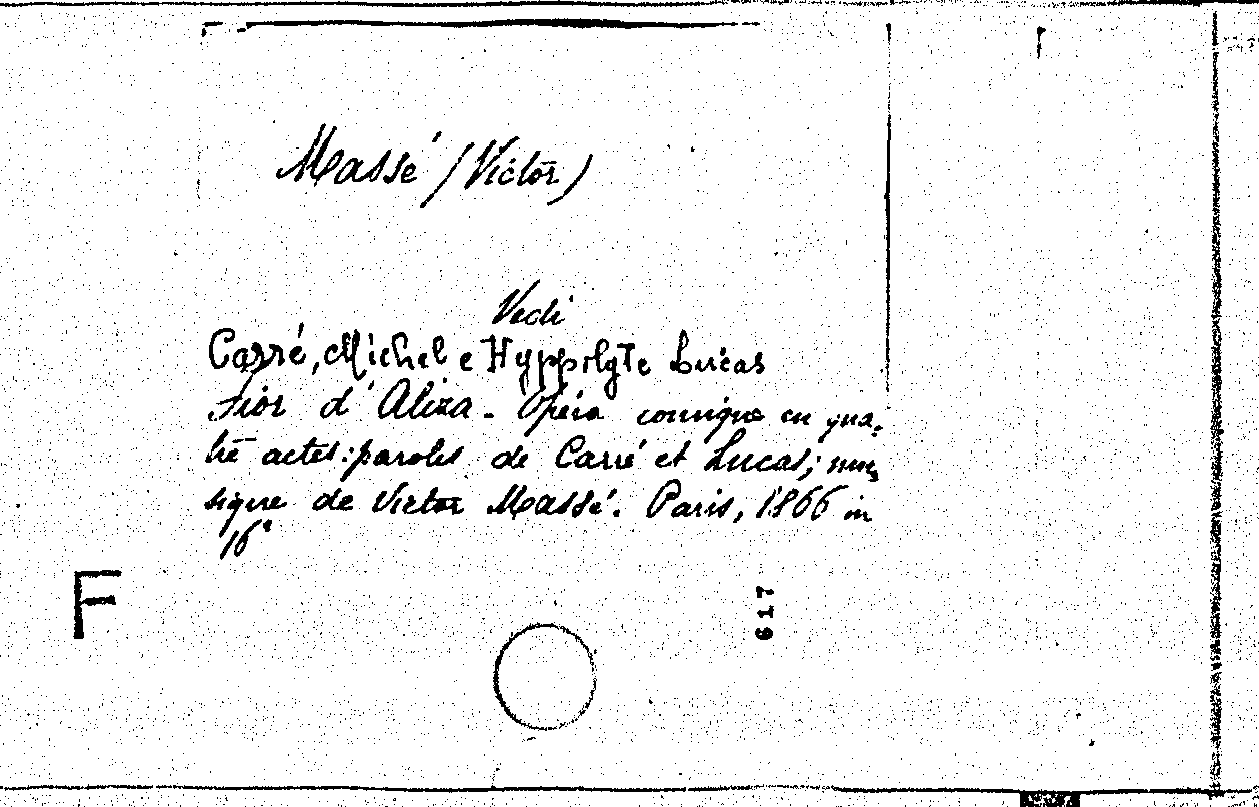 Massé (Victor)
Vedi
Carré, Michel e Hyppolyte Lucas
Fior d'Aliza - Opéra comique en qua-
tre actes: paroles de Carré et Lucas; mu-
sique de Victor Massé. Paris, 1866 in
16°
F
617